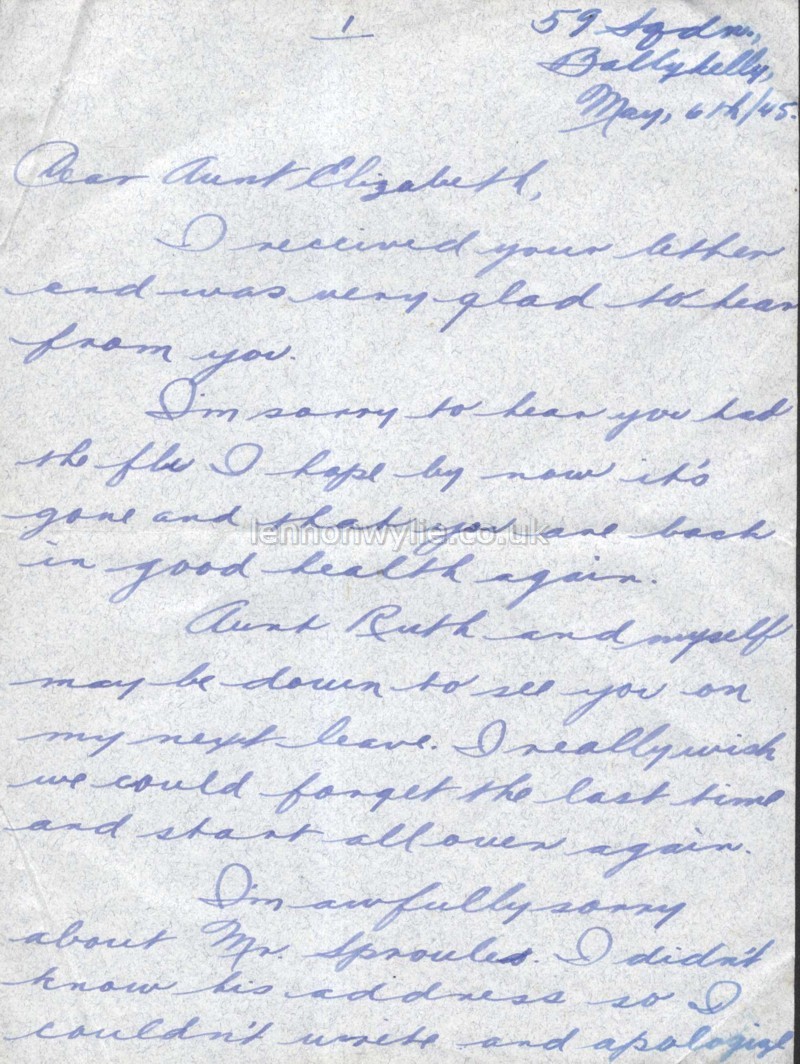 1
59 Sqdn.,
Ballykelly,
May, 6th/45.
Dear Aunt Elizabeth,
I received your letter
and was very glad to hear
from you.
I'm sorry to hear you had
the flu I hope by now it's
gone and that you are back
lennonwylie.co.uk
in good health again.
Aunt Ruth and myself
may be down to see you on
my next leave. I really wish
we could forget the last time
and start all over again.
I'm awfully sorry
about Mr. Sproules. I didn't
know his address so I
couldn't write and apologize